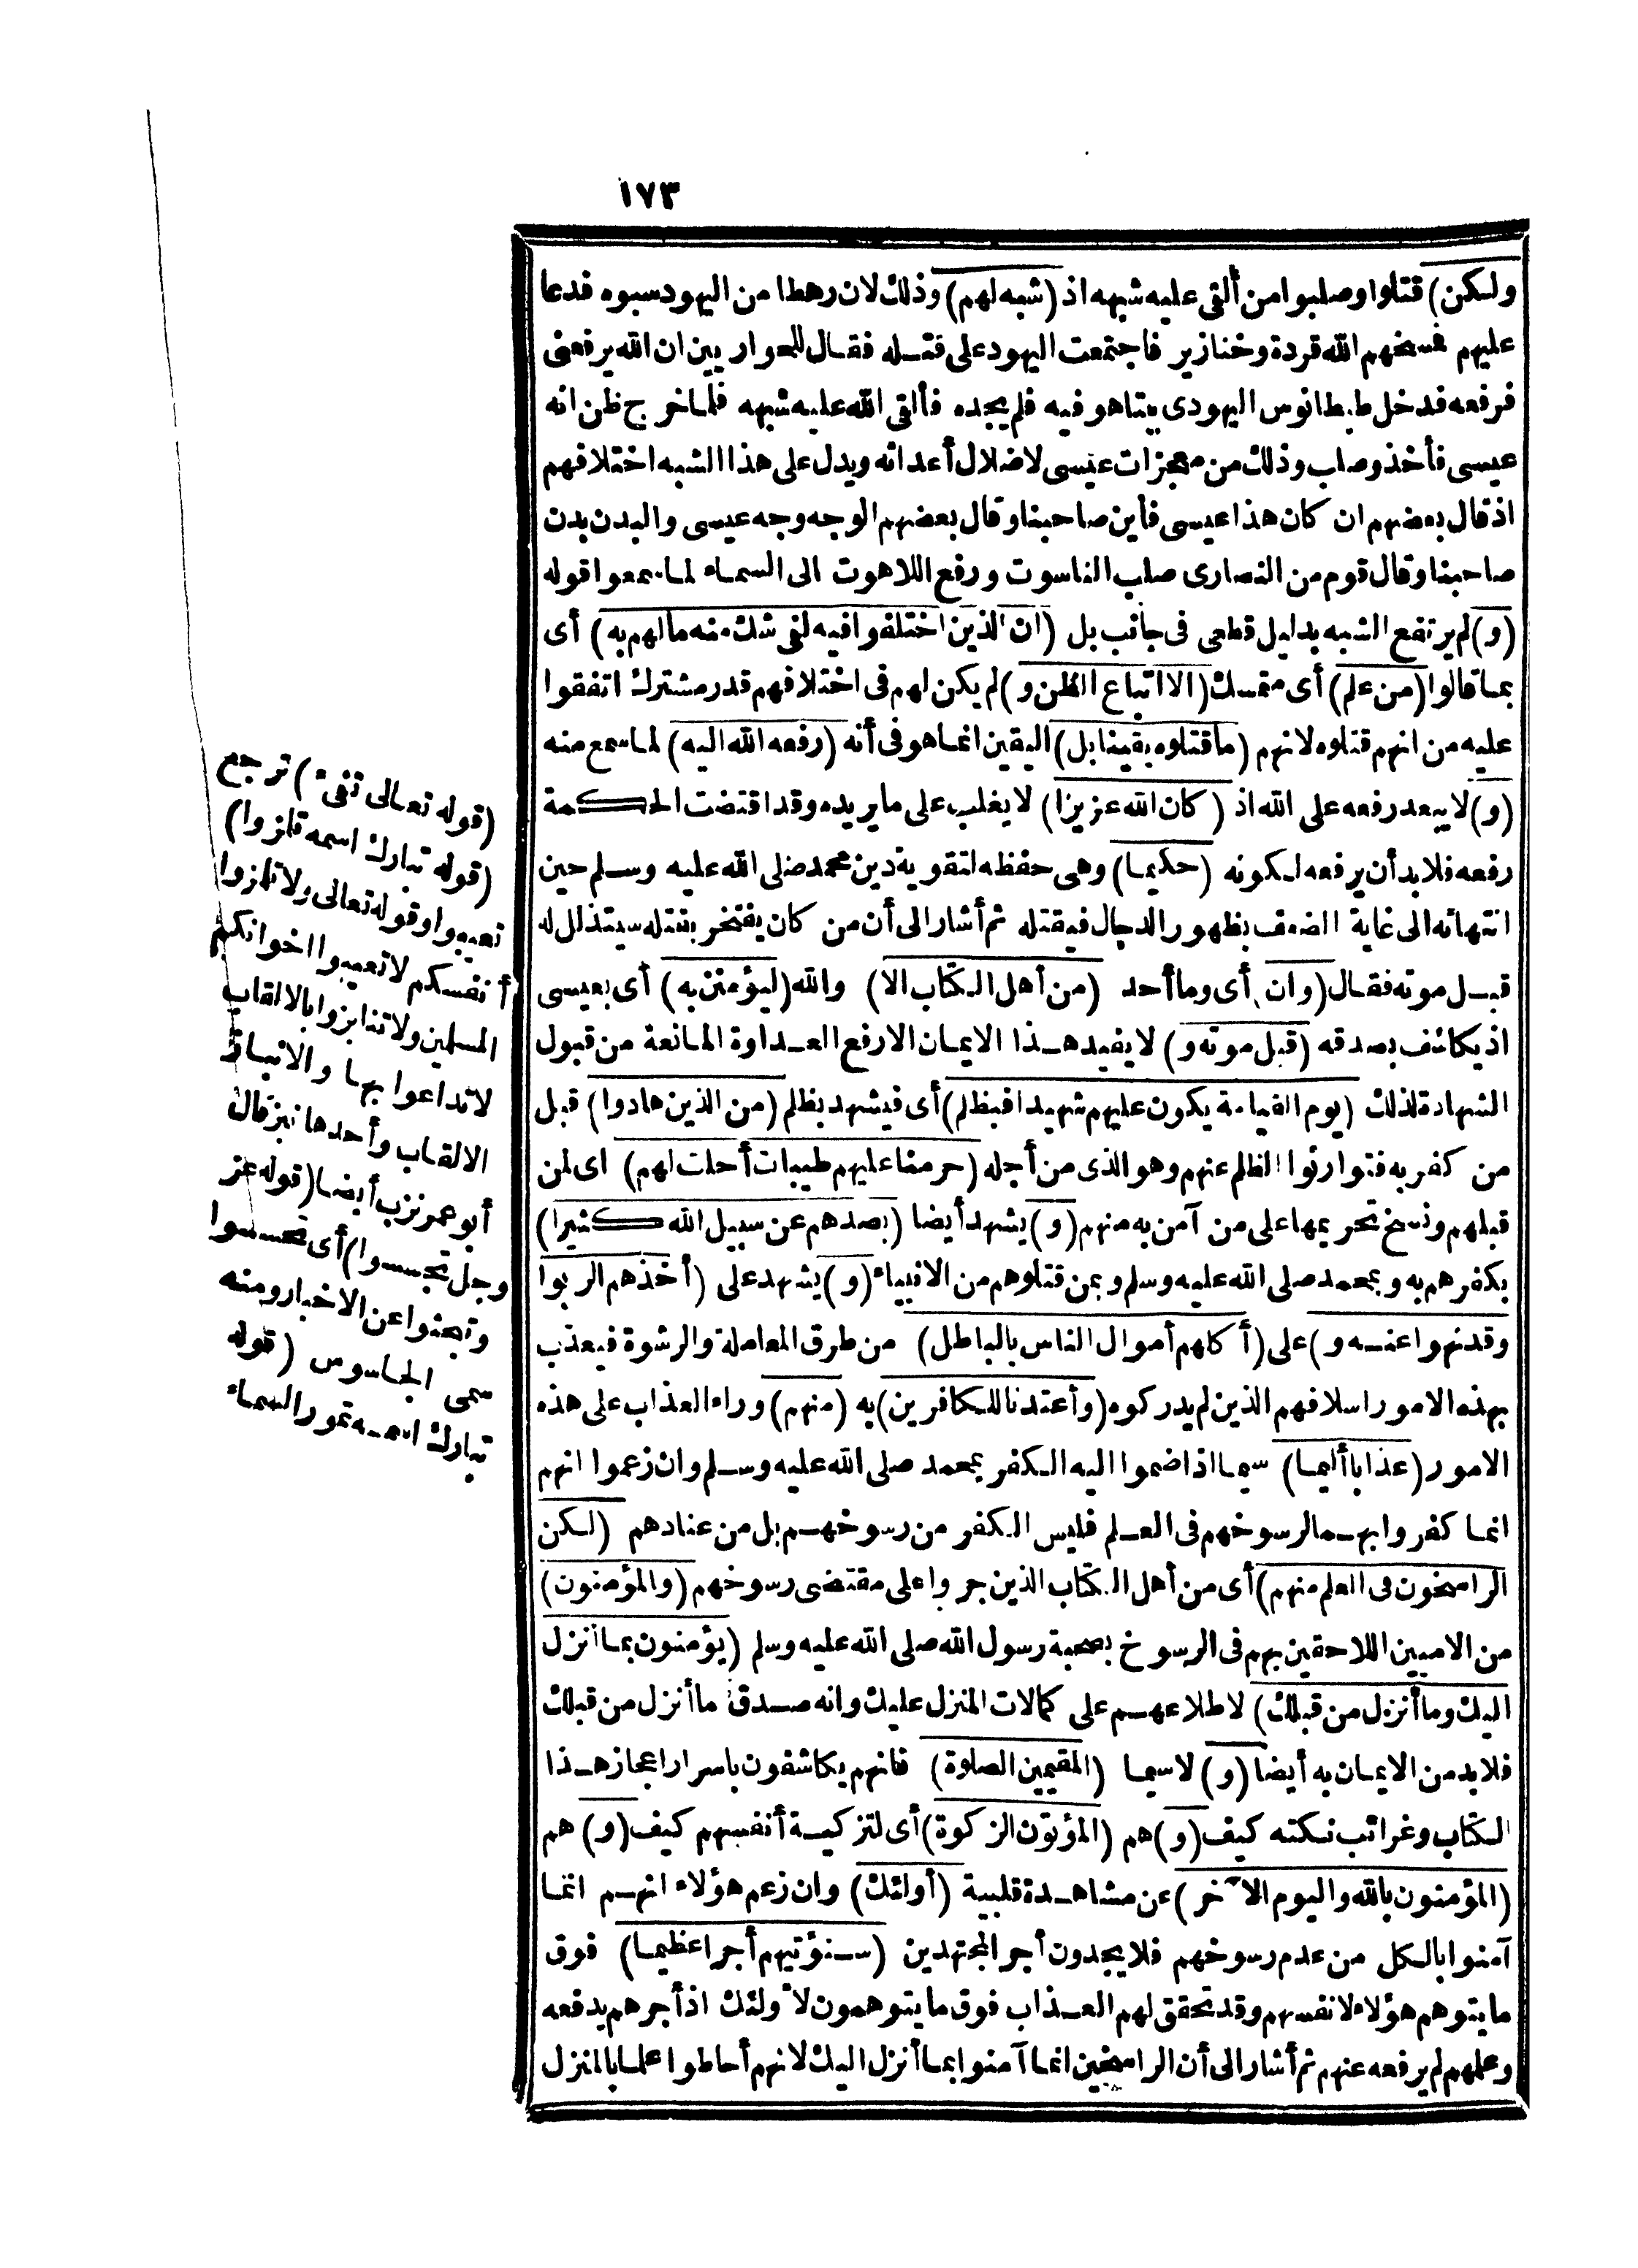 ١٧٣
ولكن) قتلوا وصلبوا من ألقى عليه شبهه اذ (شبه لهم) وذلك لان رهطا من اليهود سبوه فدعا
عليهم فمسخهم الله قردة وخنازير فاجتمعت اليهود على قتله فقال للحواريين ان الله يرفعنى
فرفعه فدخل طيطانوس اليهودى بيتا هو فيه فلم يجده فألقى الله عليه شبهه فلما خرج ظن انه
عيسى فأخذ وصلب وذلك من معجزات عيسى لاضلال أعدائه ويدل على هذا الشبه اختلافهم
اذ قال بعضهم ان كان هذا عيسى فأين صاحبنا وقال بعضهم الوجه وجه عيسى والبدن بدن
صاحبنا وقال قوم من النصارى صلب الناسوت ورفع اللاهوت الى السماء لما سمعوا قوله
(و) لم يرتفع الشبه بدليل قطعى فى جانب بل (ان الذين اختلفوا فيه لفى شك منه ما لهم به) أى
بما قالوا (من علم) أى متمسك (الا اتباع الظن و) لم يكن لهم فى اختلافهم قدر مشترك اتفقوا
عليه من انهم قتلوه لانهم (ما قتلوه يقينا بل) اليقين انما هو فى أنه (رفعه الله اليه) لما سمع منه
(و) لا يبعد رفعه على الله اذ (كان الله عزيزا) لا يغلب على ما يريده وقد اقتضت الحكمة
رفعه فلا بد أن يرفعه لكونه (حكيما) وهى حفظه لتقوية دين محمد صلى الله عليه وسلم حين
انتهائه الى غاية الضعف بظهور الدجال فيقتله ثم أشار الى أن من كان يفتخر بقتله سيتذلل له
قبل موته فقال (وان) أى وما أحد (من أهل الكتاب الا) والله (ليؤمنن به) أى بعيسى
اذ يكاشف بصدقه (قبل موته و) لا يفيد هذا الايمان الا رفع العداوة المانعة من قبول
الشهادة لذلك (يوم القيامة يكون عليهم شهيدا فبظلم) أى فيشهد بظلم (من الذين هادوا) قبل
من كفر به فتوارثوا الظلم عنهم وهو الذى من أجله (حرمنا عليهم طيبات أحلت لهم) اى لمن
قبلهم ونسخ تحريمها على من آمن به منهم (و) يشهد أيضا (بصدهم عن سبيل الله كثيرا)
بكفرهم به وبمحمد صلى الله عليه وسلم وبمن قتلوهم من الانبياء (و) يشهد على (أخذهم الربوا
وقد نهوا عنه و) على (أكلهم أموال الناس بالباطل) من طرق المعاملة والرشوة فيعذب
بهذه الامور اسلافهم الذين لم يدركوه (وأعتدنا للكافرين) به (منهم) وراء العذاب على هذه
الامور (عذابا أليما) سيما اذا ضموا اليه الكفر بمحمد صلى الله عليه وسلم وان زعموا انهم
انما كفروا بهما لرسوخهم فى العلم فليس الكفر من رسوخهم بل من عنادهم (لكن
الراسخون فى العلم منهم) أى من أهل الكتاب الذين جروا على مقتضى رسوخهم (والمؤمنون)
من الاميين اللاحقين بهم فى الرسوخ بصحبة رسول الله صلى الله عليه وسلم (يؤمنون بما أنزل
اليك وما أنزل من قبلك) لاطلاعهم على كمالات المنزل عليك وانه صدق ما أنزل من قبلك
فلا بد من الايمان به أيضا (و) لا سيما (المقيمين الصلوة) فانهم يكاشفون باسرار اعجاز هذا
الكتاب وغرائب نكته كيف (و) هم (المؤتون الزكوة) أى لتزكية أنفسهم كيف (و) هم
(المؤمنون بالله واليوم الآخر) عن مشاهدة قلبية (أولئك) وان زعم هؤلاء انهم انما
آمنوا بالكل من عدم رسوخهم فلا يجدون أجر المجتهدين (سنؤتيهم أجرا عظيما) فوق
ما يتوهم هؤلاء لانفسهم وقد تحقق لهم العذاب فوق ما يتوهمون لأولئك اذ أجرهم يدفعه
وعملهم لم يرفعه عنهم ثم أشار الى أن الراسخين انما آمنوا بما أنزل اليك لانهم أحاطوا علما بالمنزل
(قوله تعالى تفىء) ترجع
(قوله تبارك اسمه تلمزوا)
تعيبوا وقوله تعالى ولا تلمزوا
أنفسكم لا تعيبوا اخوانكم
المسلمين ولا تنابزوا بالالقاب
لا تداعوا بها والانباز
الالقاب وأحدها نبز قال
أبو عمر نزب أيضا (قوله عز
وجل تجسسوا) أى تحسسوا
وتبحثوا عن الاخبار ومنه
سمى الجاسوس (قوله
تبارك اسمه تمور السماء